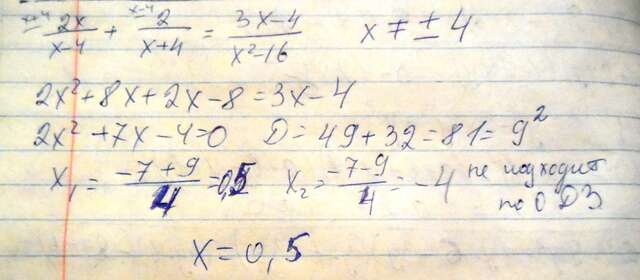 x+4 2x/x-4 + x-4 2/x+4 = 3x-4/x²-16 x ≠ ± 4
2x²+8x+2x-8=3x-4
2x²+7x-4=0 D=49+32=81=9²
x₁=-7+9/4=0,5 x₂=-7-9/4=-4 не подходит
по ОДЗ
x=0,5